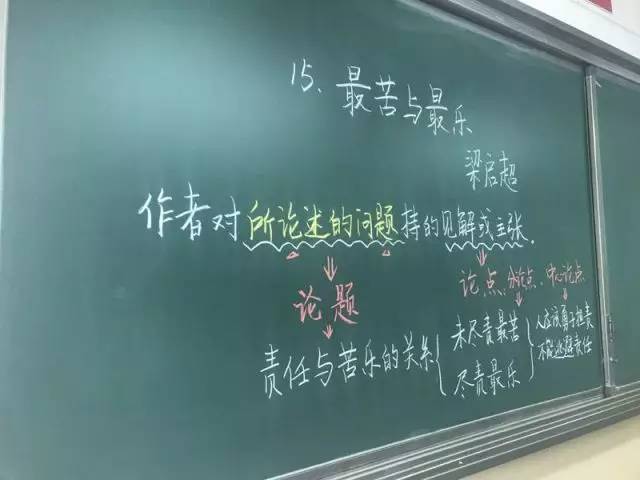 15、最苦与最乐
梁启超
作者对所论述的问题持的见解或主张.
论题
论点、分论点、中心论点
责任与苦乐的关系{
未尽责最苦
尽责最乐
}人应该勇于担责
不能逃避责任